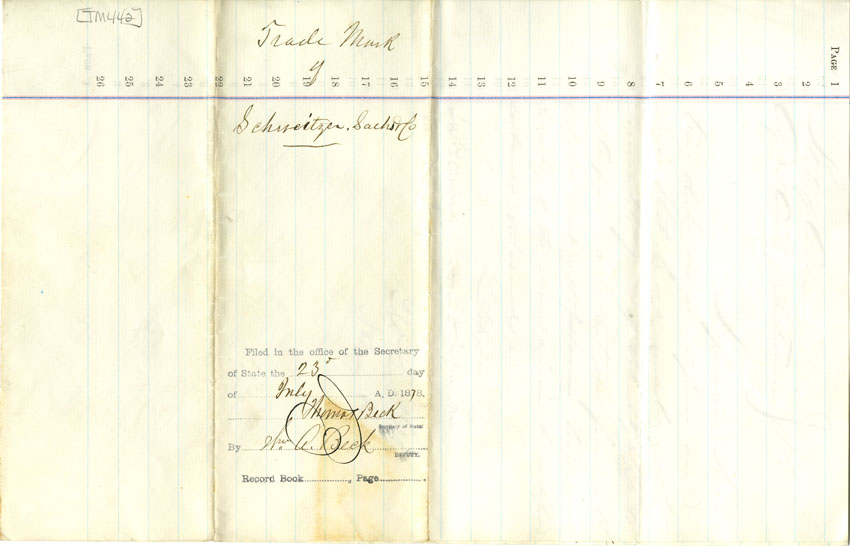 [TM442]
Trade Mark
of
PAGE 1
2
3
4
5
6
7
8
9
10
11
12
13
14
15
16
17
18
19
20
21
22
23
24
25
26
Schweitzer, Sachs & Co
Filed in the office of the Secretary
of State the 23d day
of July A, D. 1878.
Thomas Beck
Secretary of State
By Wm. A. Beck
DEPUTY.
Record Book, Page.